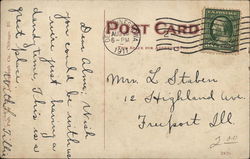 POST CARD
1911
6-PM
Dear Alma, Wish
you could be with us
were just having a
dandy time. This is a
great place.
With
Mrs. L Staben
12 Highland Ave.
Freeport Ill